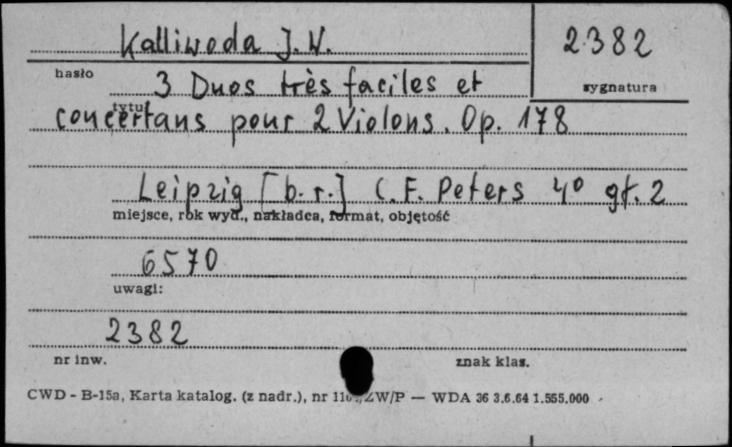 Kalliwoda J. W.
2382
hasło
3 Duos très faciles et
sygnatura
tytuł
concertans pour 2 Violons. Op. 178
Leipzig [b. r.] C. F. Peters 4° gł. 2
miejsce, rok wyd., nakładca, format, objętość
6570
uwagi:
2382
nr inw.
znak klas.
CWD - B-15a, Karta katalog. (z nadr.), nr ZW/P — WDA 36 3.6.64 1.555.000